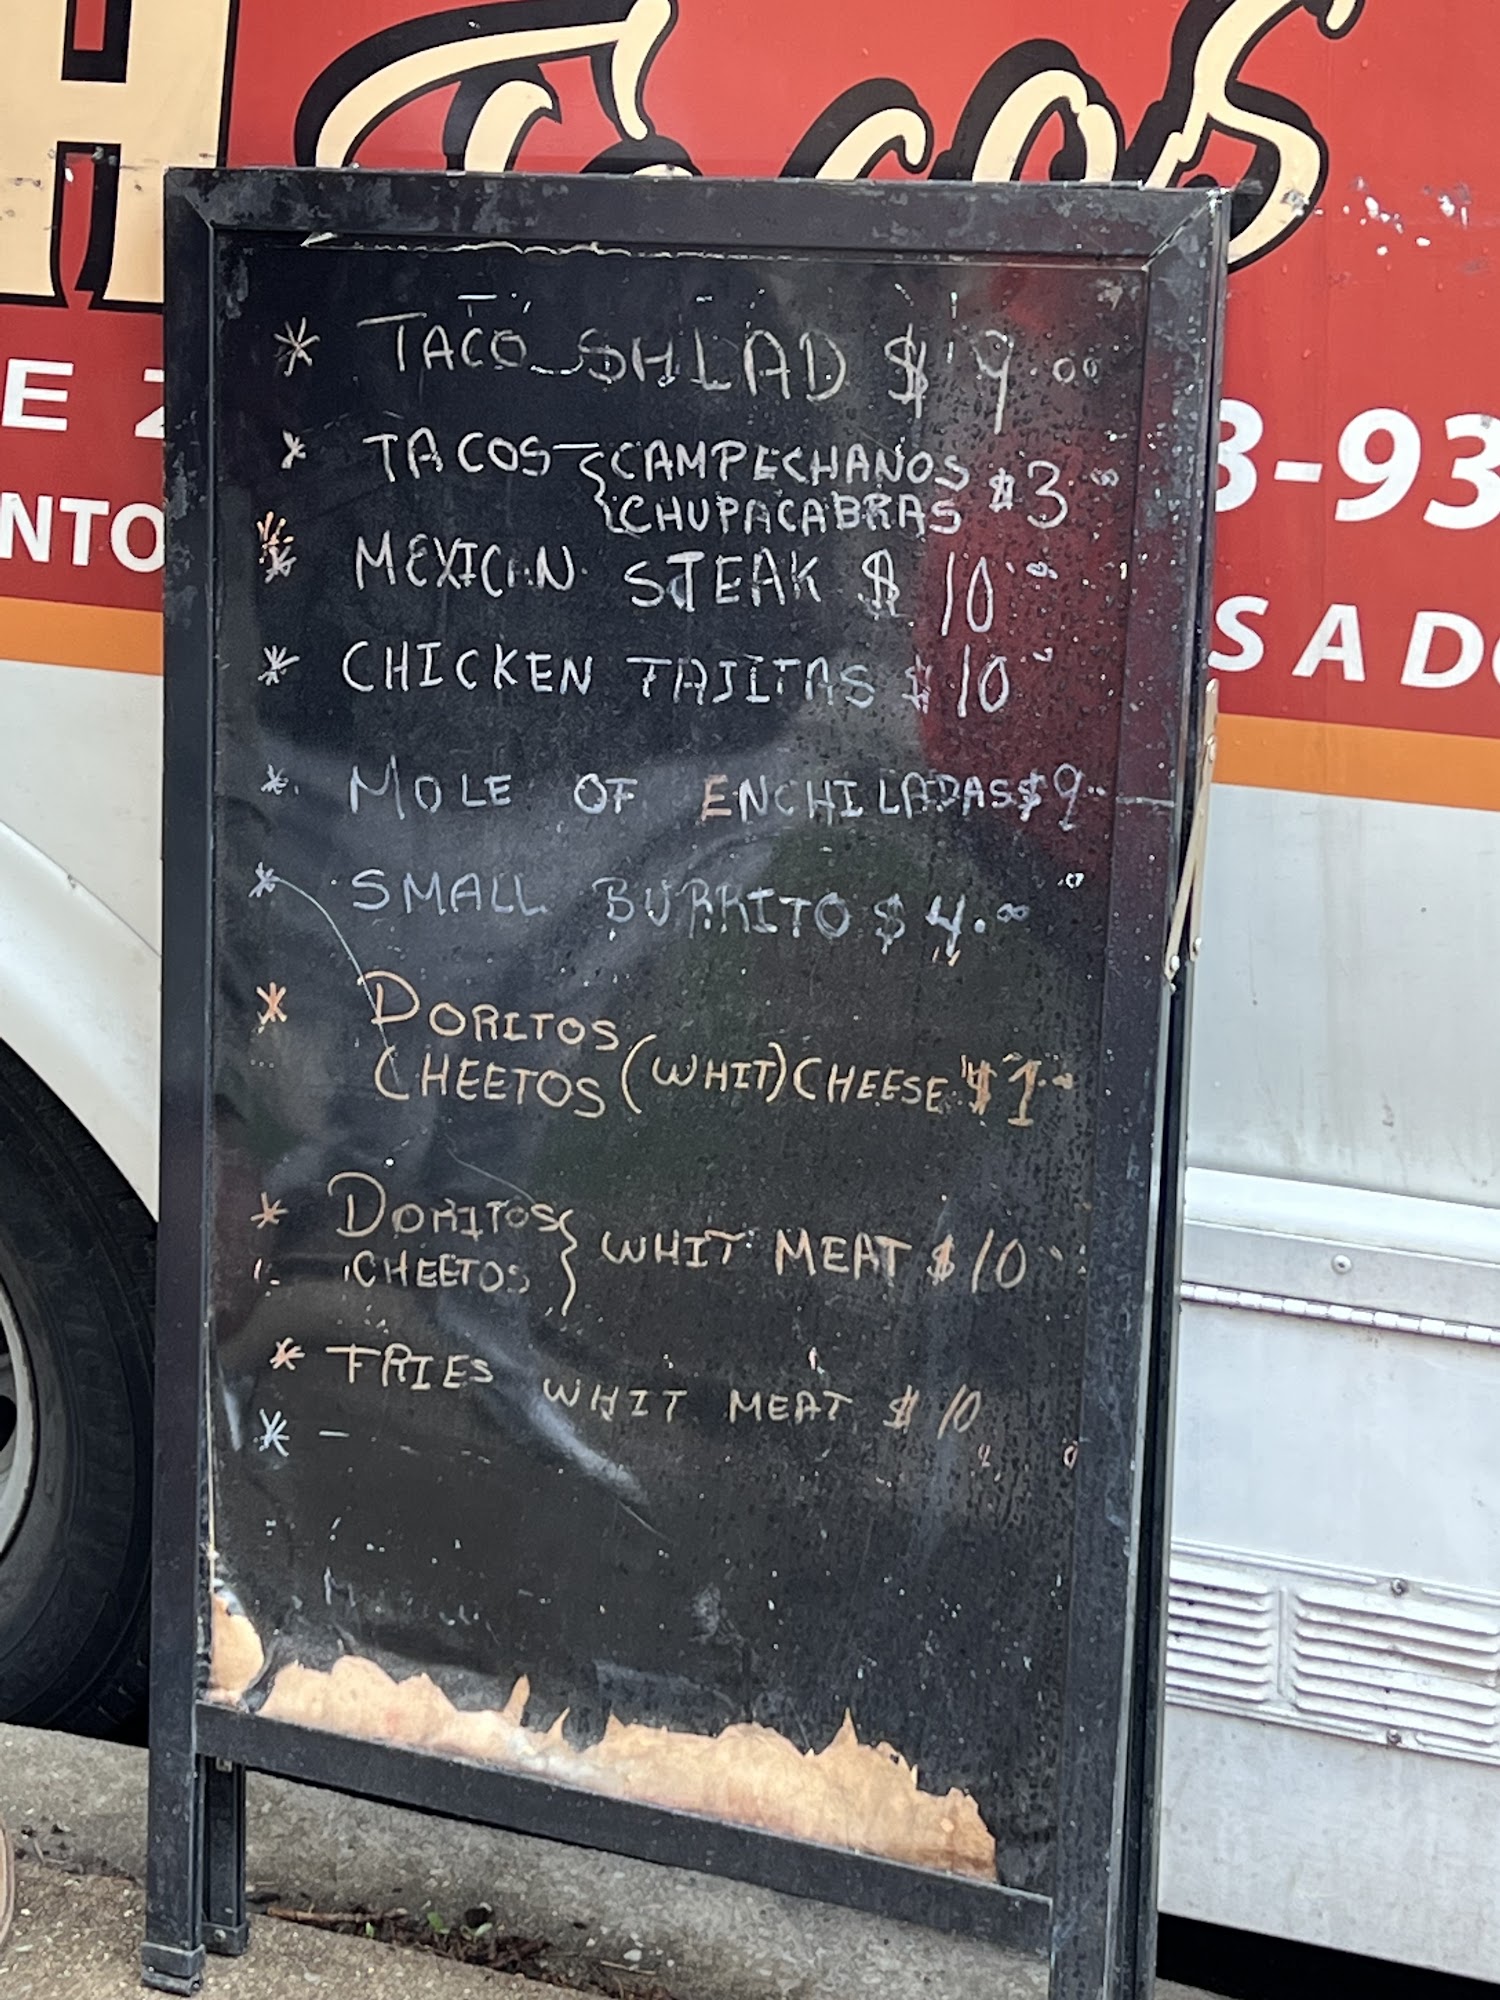 H Tacos
E 2
3-93
NTO
S A DO
* TACO SHLAD $ 9.00
* TACOS - { CAMPECHANOS $3.00
CHUPACABRAS
* MEXICAN STEAK $ 10.00
* CHICKEN FAJITAS $10
* MOLE OF ENCHILADAS $9
* SMALL BURRITO $ 4.00
* DORITOS
CHEETOS (WHIT) CHEESE $1
* DORITOS } WHIT MEAT $10
CHEETOS
* FRIES WHIT MEAT $10
* -